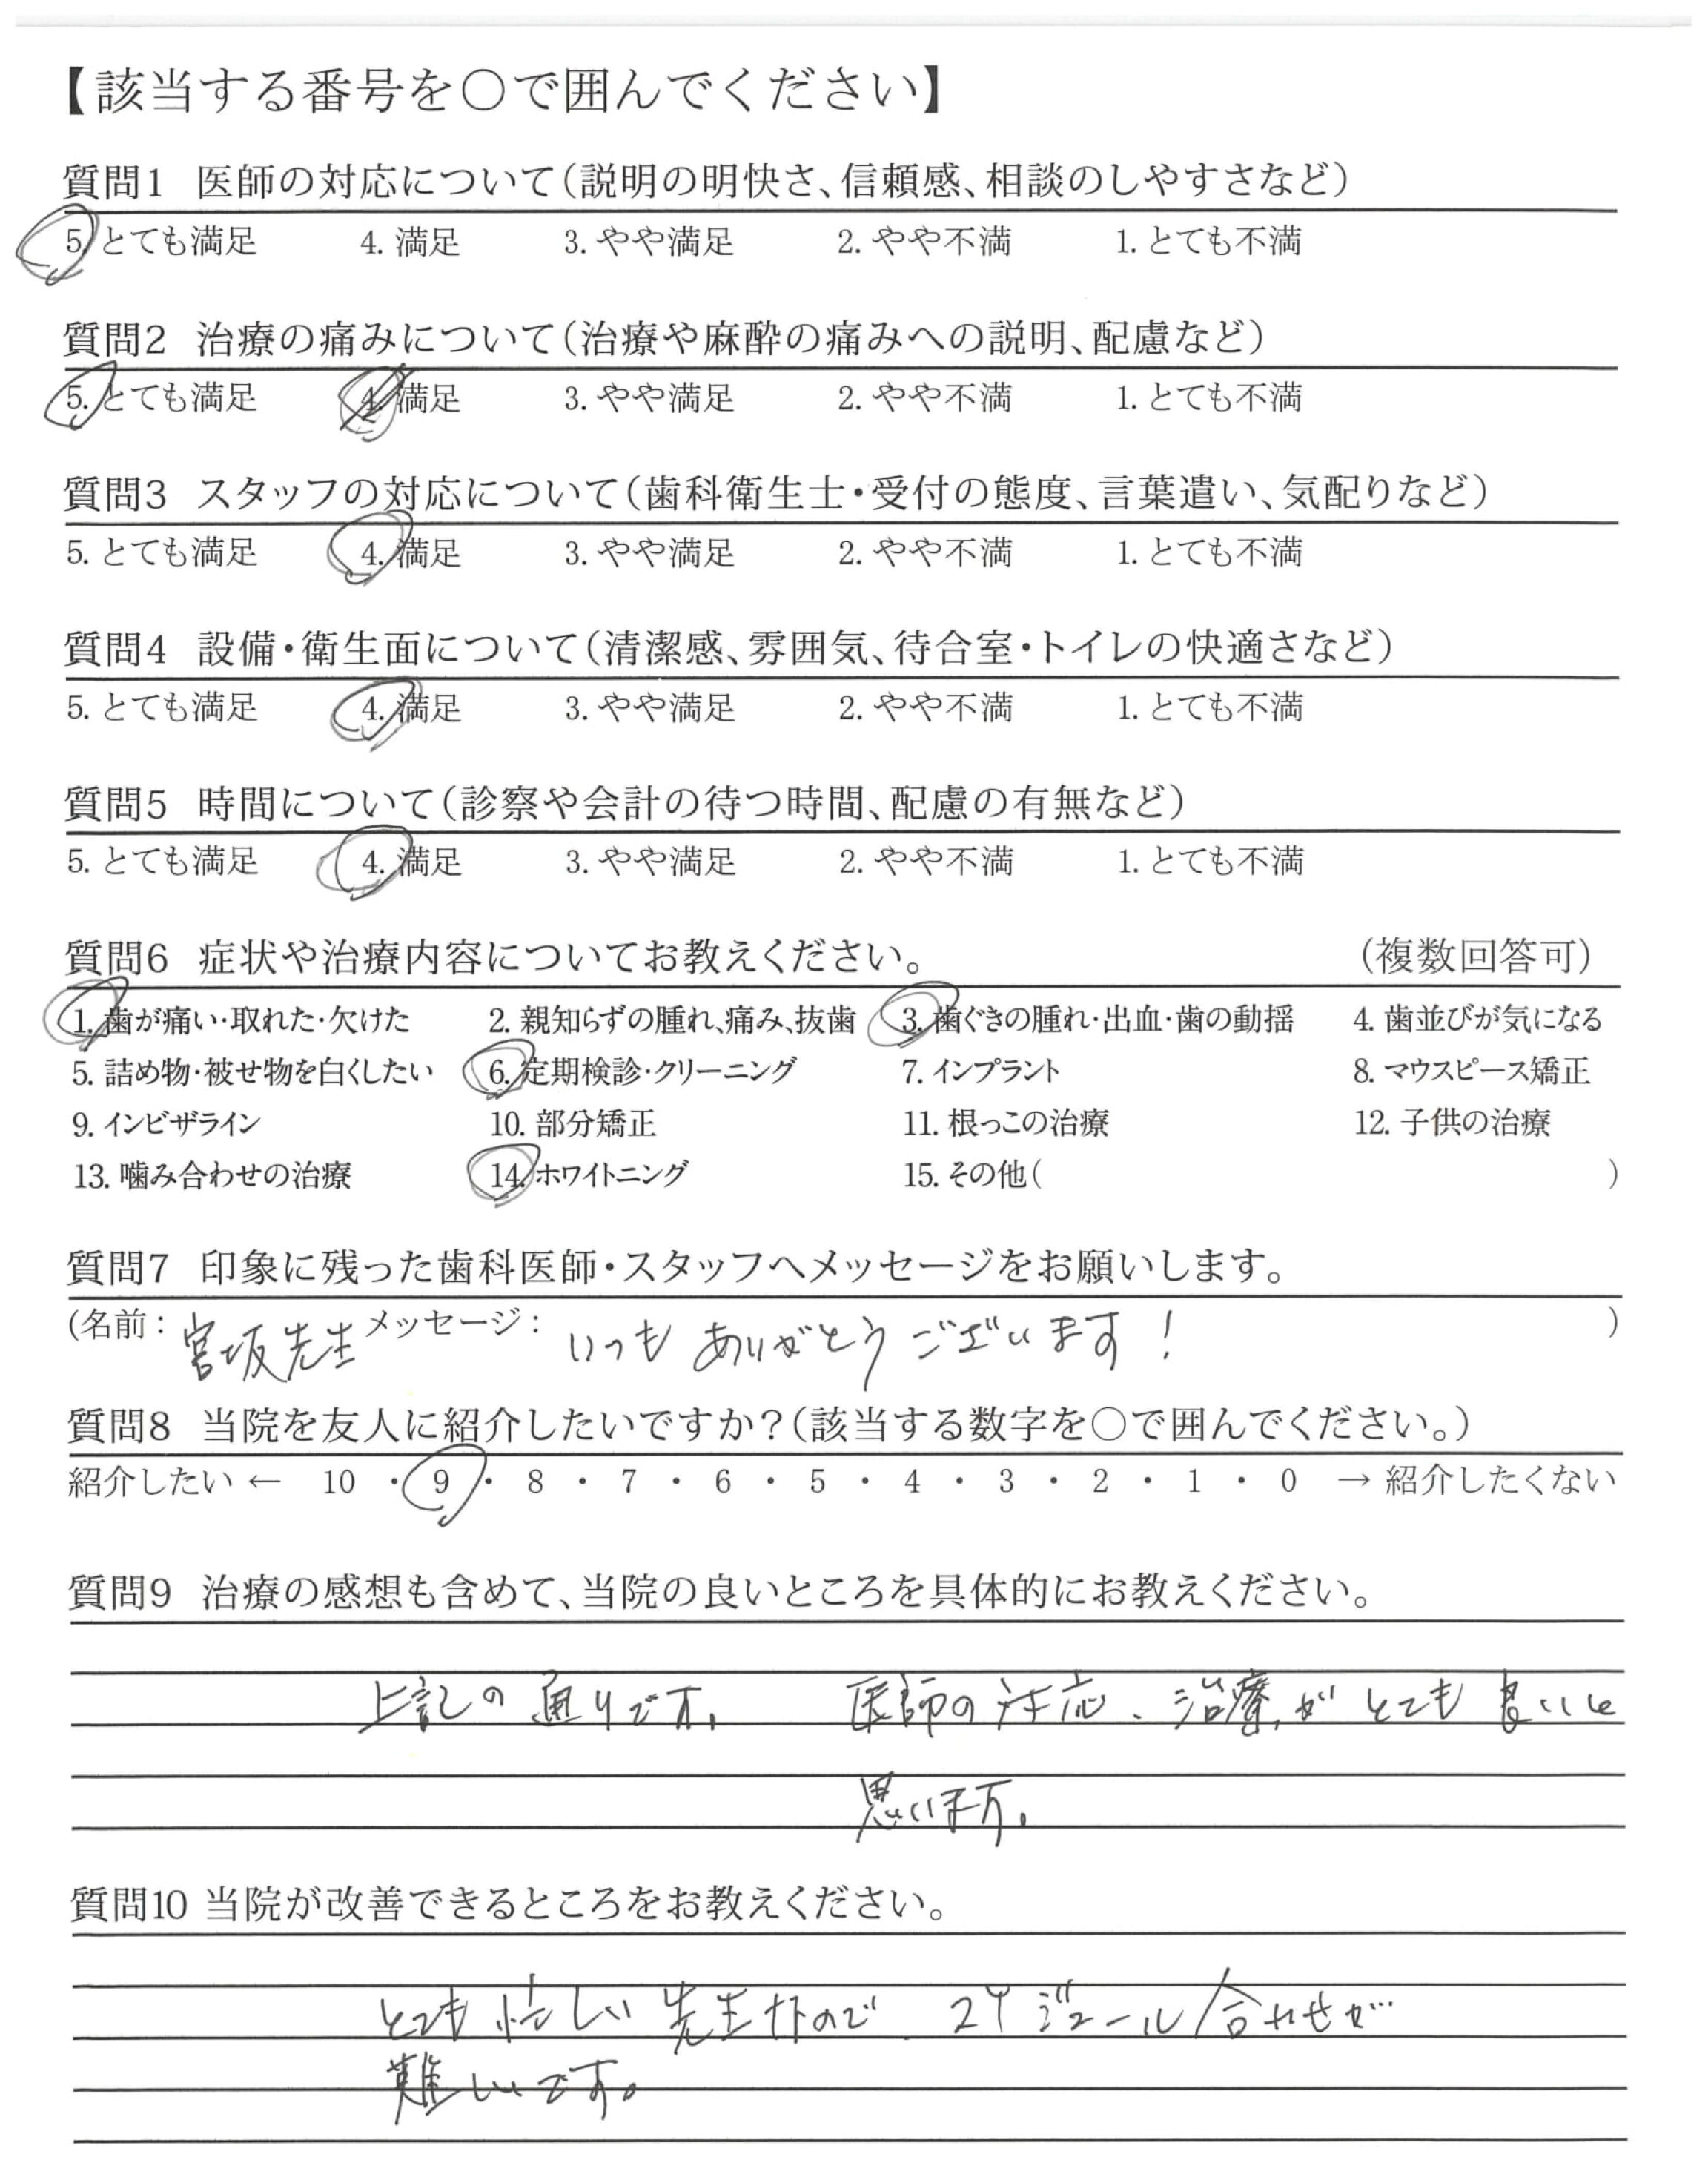 【該当する番号を○で囲んでください】
質問1 医師の対応について(説明の明快さ、信頼感、相談のしやすさなど)
5. とても満足 4. 満足 3. やや満足 2. やや不満 1. とても不満
質問2 治療の痛みについて(治療や麻酔の痛みへの説明、配慮など)
5. とても満足 4. 満足 3. やや満足 2. やや不満 1. とても不満
質問3 スタッフの対応について(歯科衛生士・受付の態度、言葉遣い、気配りなど)
5. とても満足 4. 満足 3. やや満足 2. やや不満 1. とても不満
質問4 設備・衛生面について(清潔感、雰囲気、待合室・トイレの快適さなど)
5. とても満足 4. 満足 3. やや満足 2. やや不満 1. とても不満
質問5 時間について(診察や会計の待つ時間、配慮の有無など)
5. とても満足 4. 満足 3. やや満足 2. やや不満 1. とても不満
質問6 症状や治療内容についてお教えください。 (複数回答可)
1. 歯が痛い・取れた・欠けた 2. 親知らずの腫れ、痛み、抜歯 3. 歯ぐきの腫れ・出血・歯の動揺 4. 歯並びが気になる
5. 詰め物・被せ物を白くしたい 6. 定期検診・クリーニング 7. インプラント 8. マウスピース矯正
9. インビザライン 10. 部分矯正 11. 根っこの治療 12. 子供の治療
13. 噛み合わせの治療 14. ホワイトニング 15. その他( )
質問7 印象に残った歯科医師・スタッフへメッセージをお願いします。
(名前: 宮坂先生 メッセージ: いつもありがとうございます! )
質問8 当院を友人に紹介したいですか?(該当する数字を○で囲んでください。)
紹介したい ← 10 ・ 9 ・ 8 ・ 7 ・ 6 ・ 5 ・ 4 ・ 3 ・ 2 ・ 1 ・ 0 → 紹介したくない
質問9 治療の感想も含めて、当院の良いところを具体的にお教えください。
上記の通りです。 医師の対応、治療がとても良いと
思います。
質問10 当院が改善できるところをお教えください。
とても忙しい先生なので、スケジュール合わせが…
難しいです。